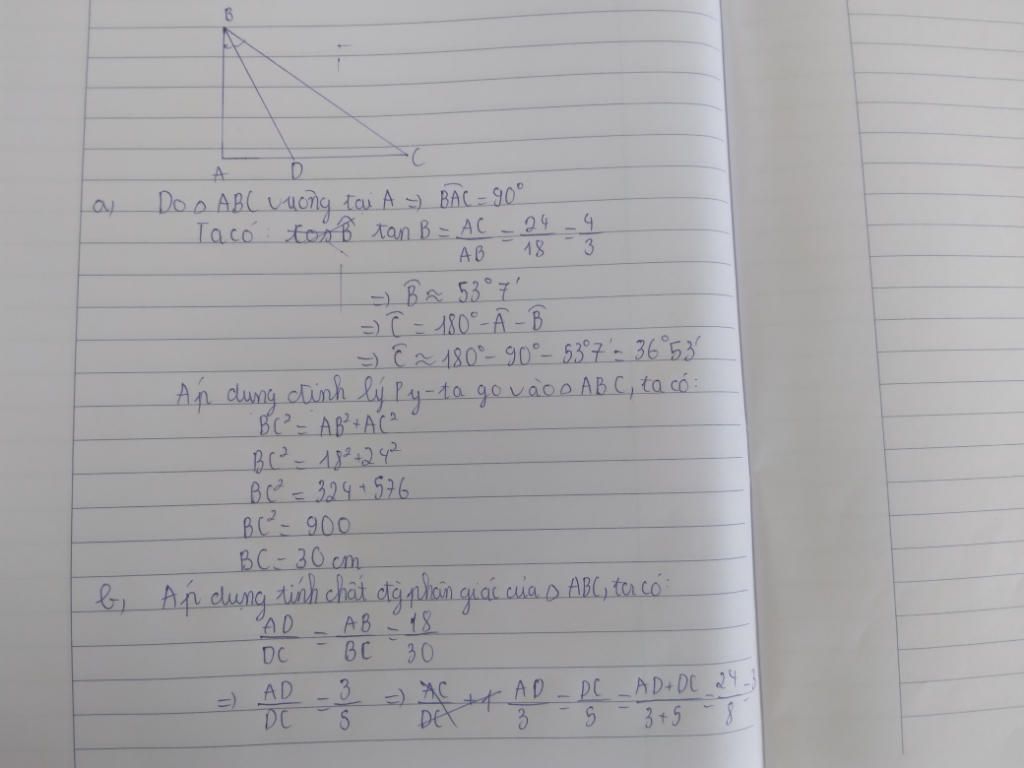 B
A D C
a, Do △ABC vuông tại A => BAC = 90°
Ta có: tan B̂ tan B = AC/AB = 24/18 = 4/3
=> B̂ ≈ 53°7'
=> Ĉ = 180° - Â - B̂
=> Ĉ ≈ 180° - 90° - 53°7' = 36°53'
Áp dụng định lý Py-ta go vào △ABC, ta có:
BC² = AB² + AC²
BC² = 18² + 24²
BC² = 324 + 576
BC² = 900
BC = 30 cm
b, Áp dụng tính chất đg phân giác của △ABC, ta có:
AD/DC = AB/BC = 18/30
=> AD/DC = 3/5 => AC/DC + 1 AD/3 = DC/5 = AD+DC/3+5 = 24/8 = 3